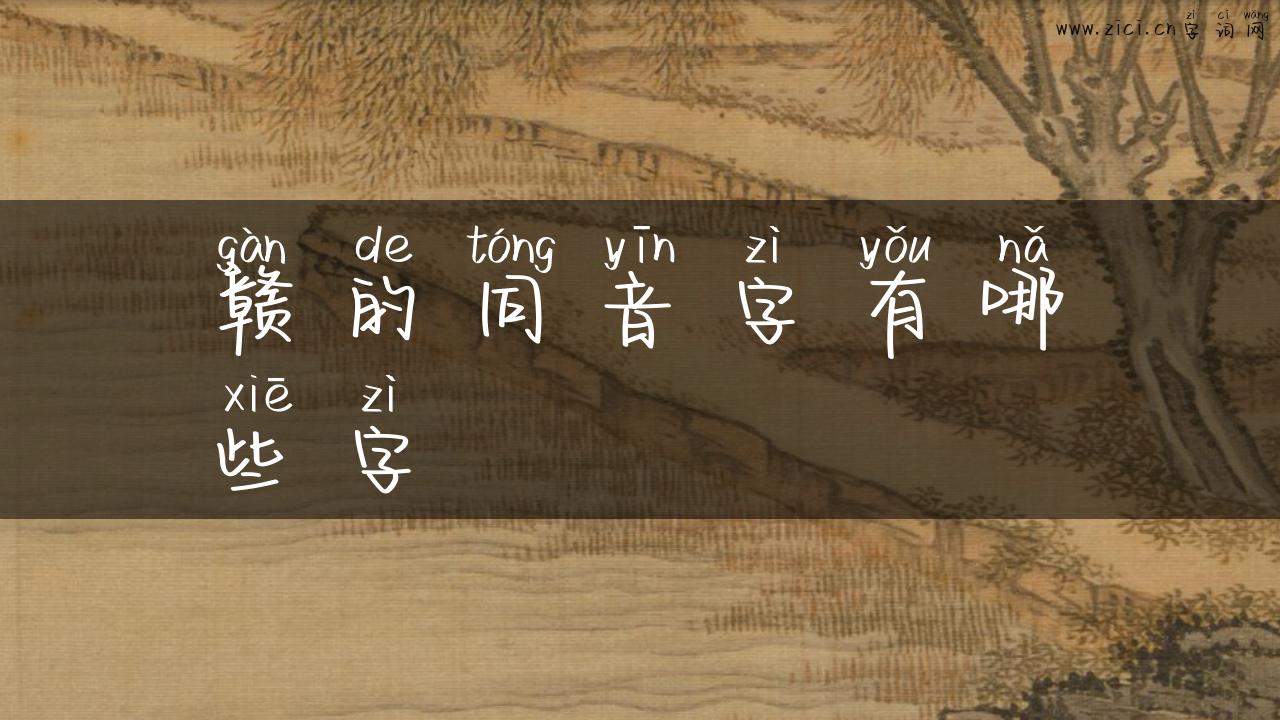 zì cí wǎng
www.zici.cn 字 词 网
gàn de tóng yīn zì yǒu nǎ
赣 的 同 音 字 有 哪
xiē zì
些 字